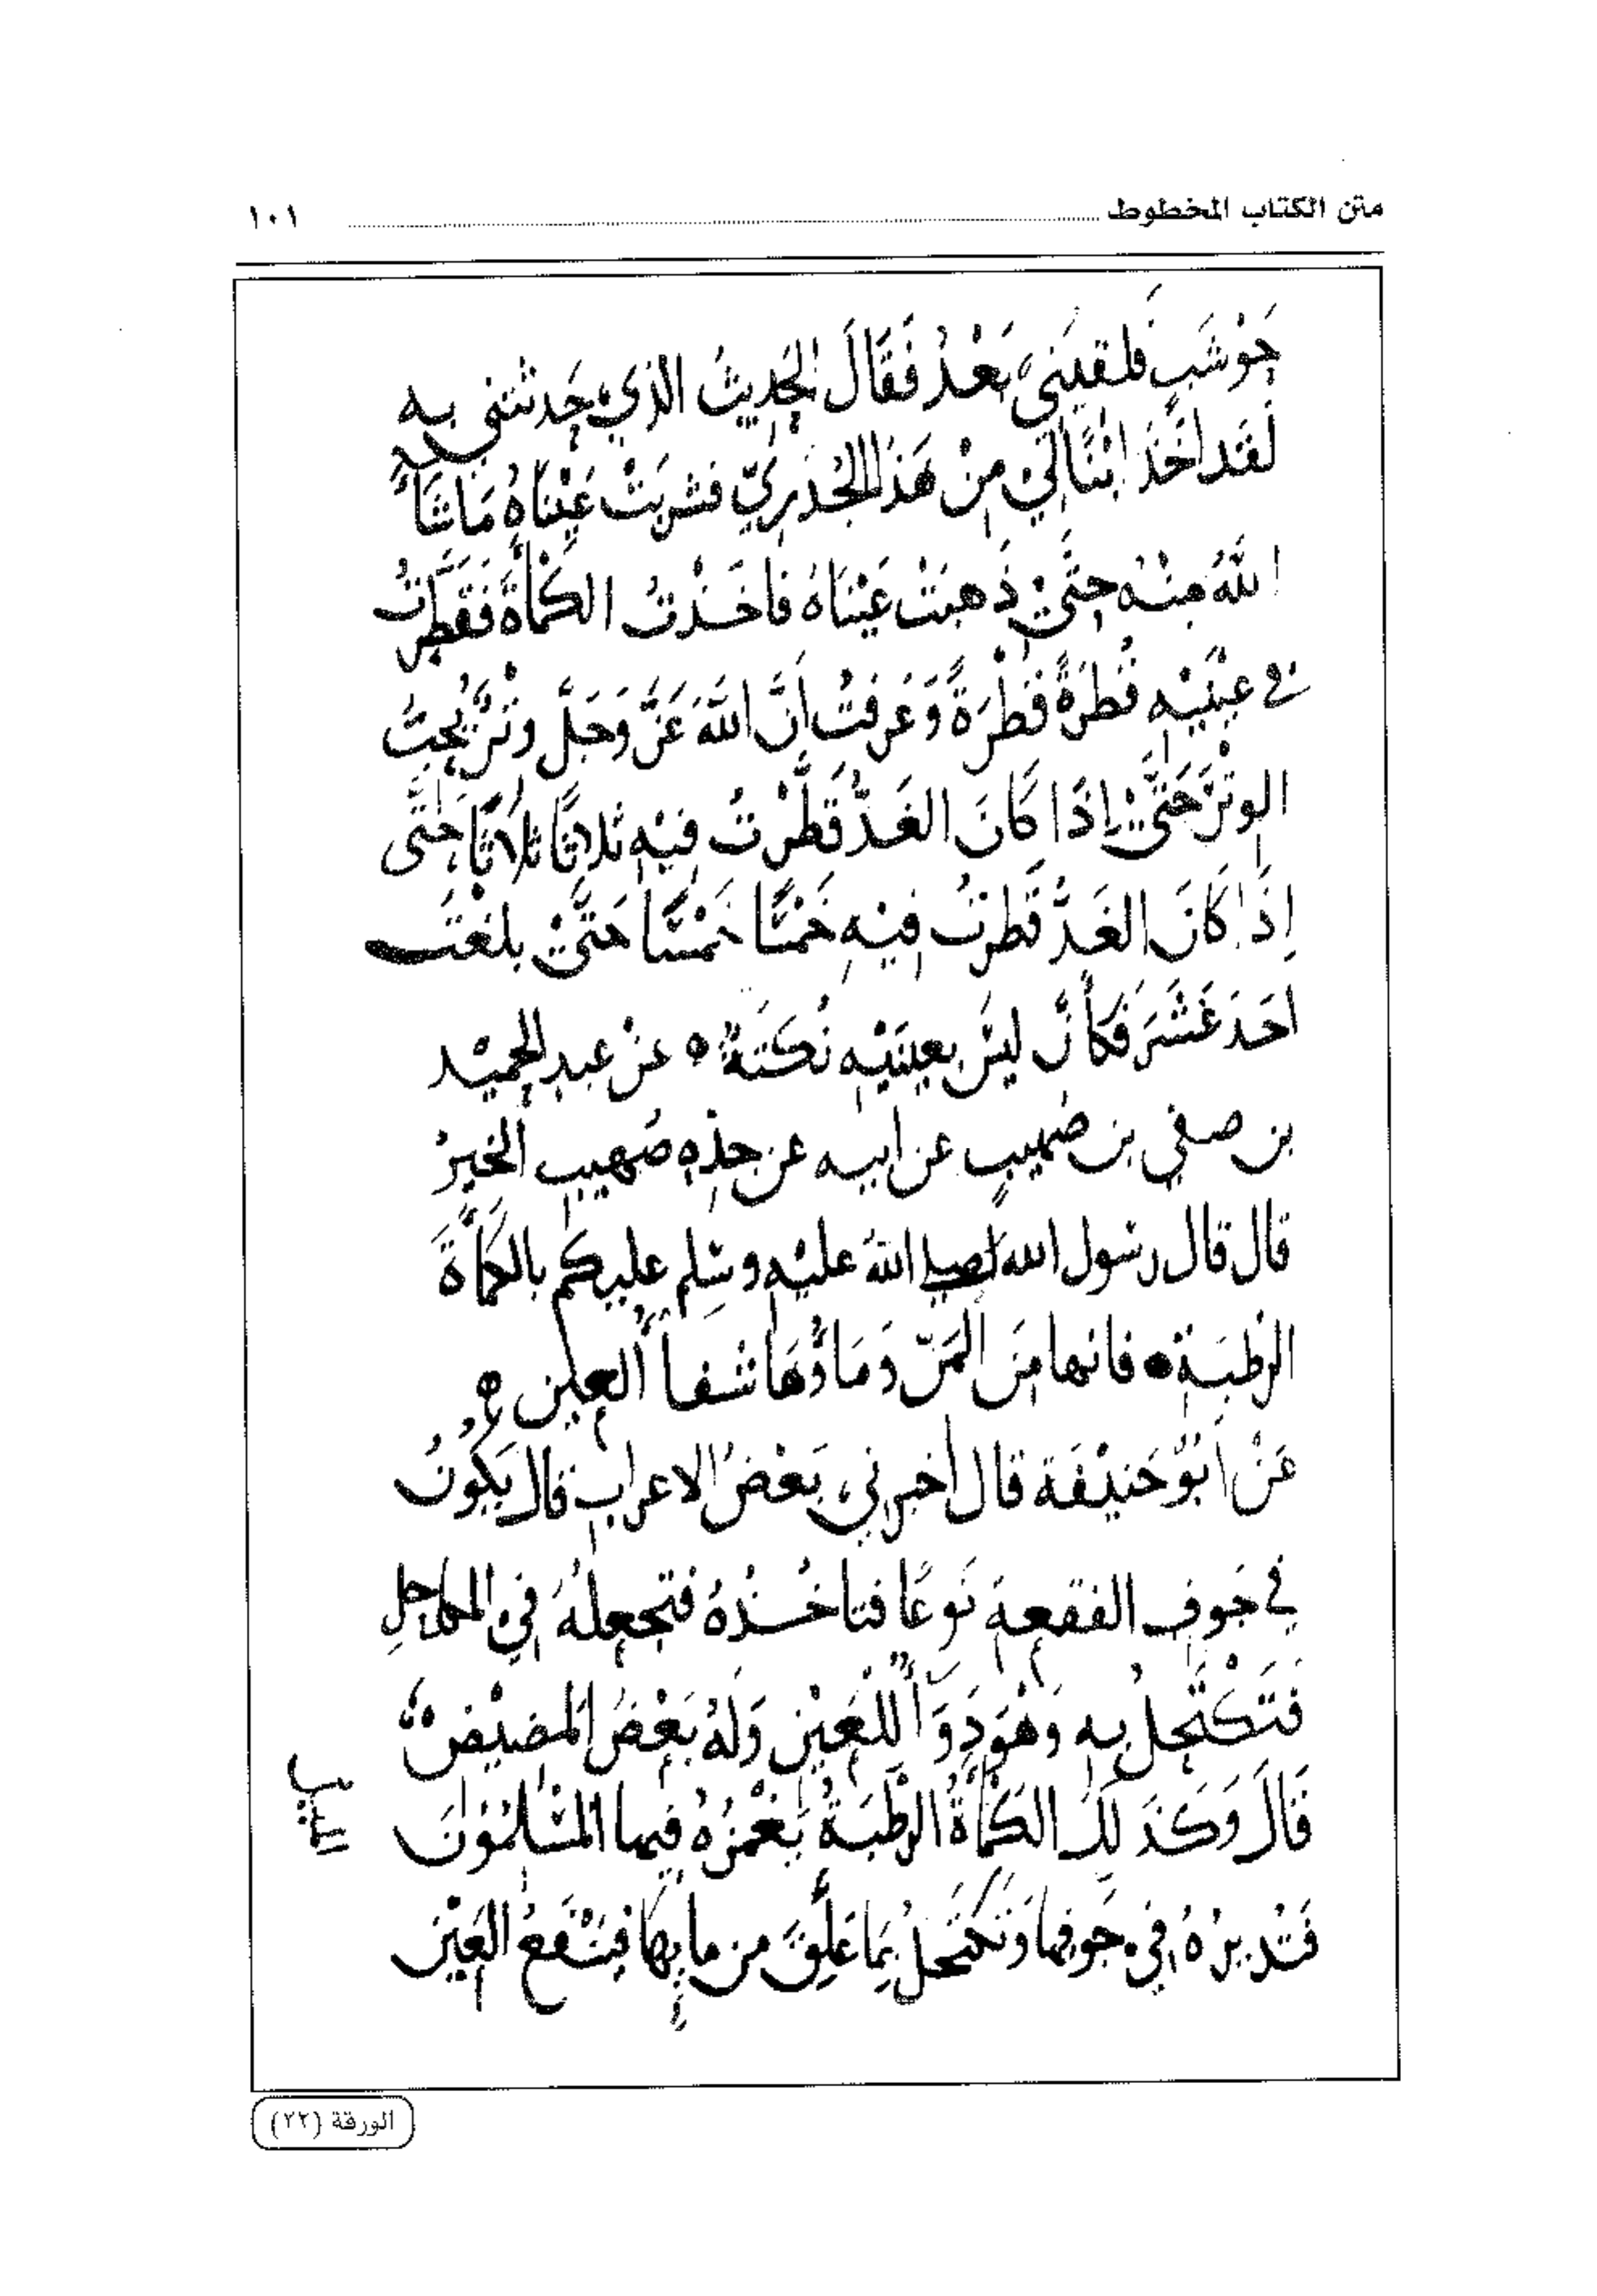 متن الكتاب المخطوط ١٠١
حَوْشَبٍ فَلقيَني بَعْدُ فَقَالَ الحَديثُ الذي حَدثتني به
لَقَد اخَذَ ابْنًا لي مِنْ هَذا الجُدَرِيّ فشربَتْ عَيْنَاهُ مَا شَاءَ
اللهُ مِنْه حتَّى ذَهبَتْ عَيْنَاهُ فاخَذْتُ الكَمأَةَ فَقَطَّرتُ
في عينَيْه قَطرَةً قَطْرَةً وَعَرفتُ أنَّ اللهَ عَزَّ وَجَلَّ وتْرٌ يُحِبُّ
الوتْرَ حَتَّى إذَا كَانَ الغَدُ قَطَّرْتُ فيْهِ ثَلاثًا ثلاثًا حَتَّى
إذَا كَانَ الغَدُ قَطرتُ فيْهِ خَمْسًا خَمْسًا حَتَّى بلغَتْ
احَدَ عَشَرَ فَكأنْ ليْسَ بعينَيْه نُكتَةٌ ه عنْ عبد الحميْد
بن صيفي بن صُهيبٍ عن ابيه عن جدِّه صُهيب الخيرْ
قال قال رسُول الله صلى اللهُ عليْه وسَلم عليكم بالكمأَةَ
الرطبَة فانها مِنَ المَنّ وَمَاؤُهَا شفاُ العين ه
عَنْ ابُو حَنيْفَة قال أخبرني بَعْضُ الاعراب قال يَكُونُ
في جَوفِ الفقعة نَوعًا فتاخُذُهُ فتجعلُهُ في المكاحلِ
فَتَكْتَحِلُ بِه وَهْوَ دَوَآُ للعَيْن وَلهُ بَعْضُ المَضيْض
قَالَ وَكَذَلِكَ الكَمأةُ الرَّطبَةُ يَغْمزُهُ فيها المسْلمُوْنَ
فَتْدِيرُهُ في جَوفها وَتَكْتَحلُ بِمَا عَلِقَ من مايِهَا فيَنْفَعُ العَيْنَ
الورقة (٢٢)